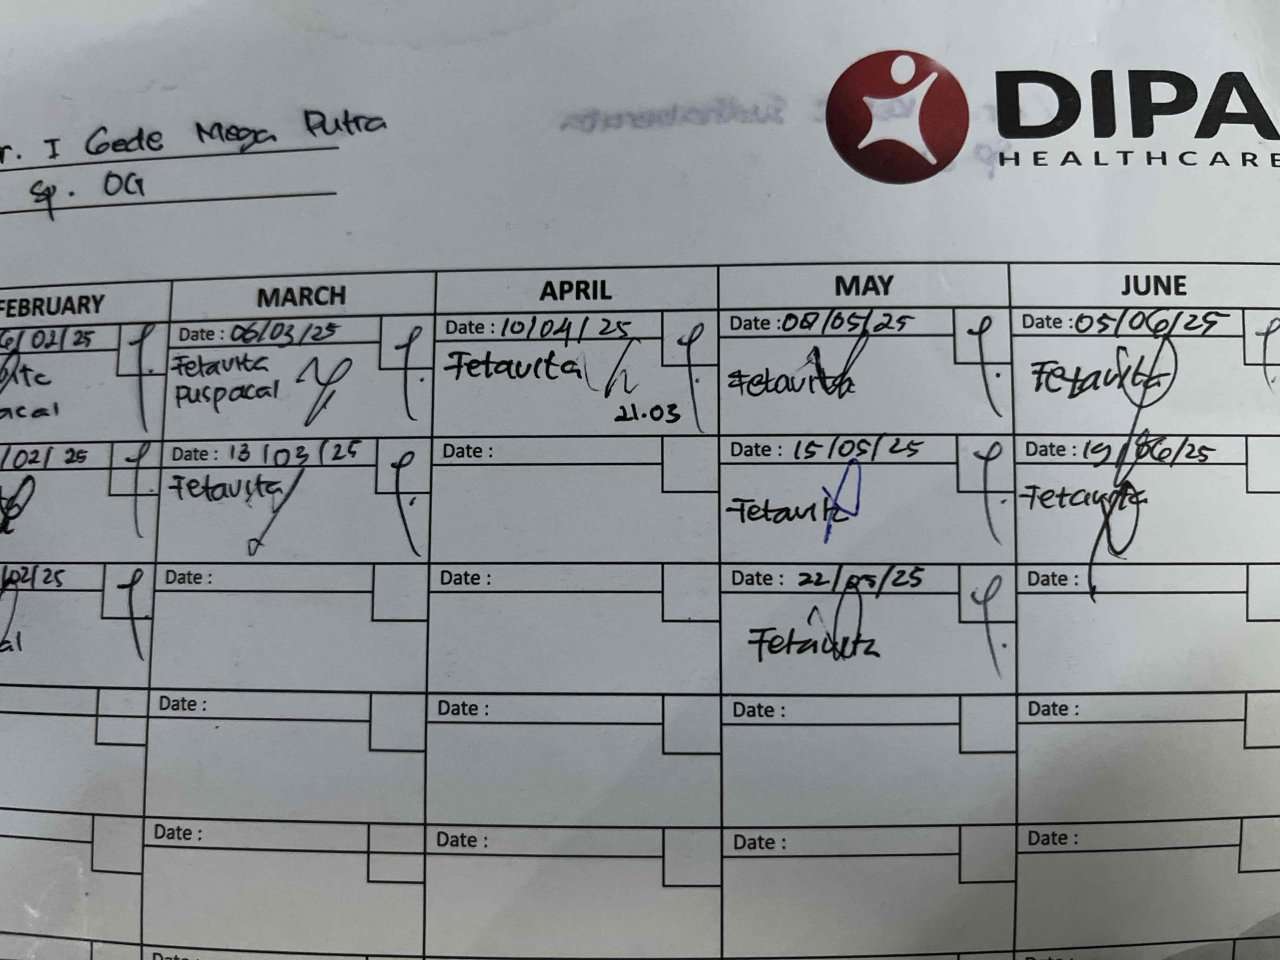 r. I Gede Mega Putra
Sp. OG
DIPA
HEALTHCARE
FEBRUARY MARCH APRIL MAY JUNE
/02/25 Date : 06/03/25 Date : 10/04/25 Date : 08/05/25 Date : 05/06/25
Fetavita Fetavita Fetavita Fetavita
acal puspacal 21.03
/02/25 Date : 13/03/25 Date : Date : 15/05/25 Date : 19/06/25
Fetavita Fetavita Fetavita
/02/25 Date : Date : Date : 22/05/25 Date :
al Fetavita
Date : Date : Date : Date :
Date : Date : Date : Date :
Date :